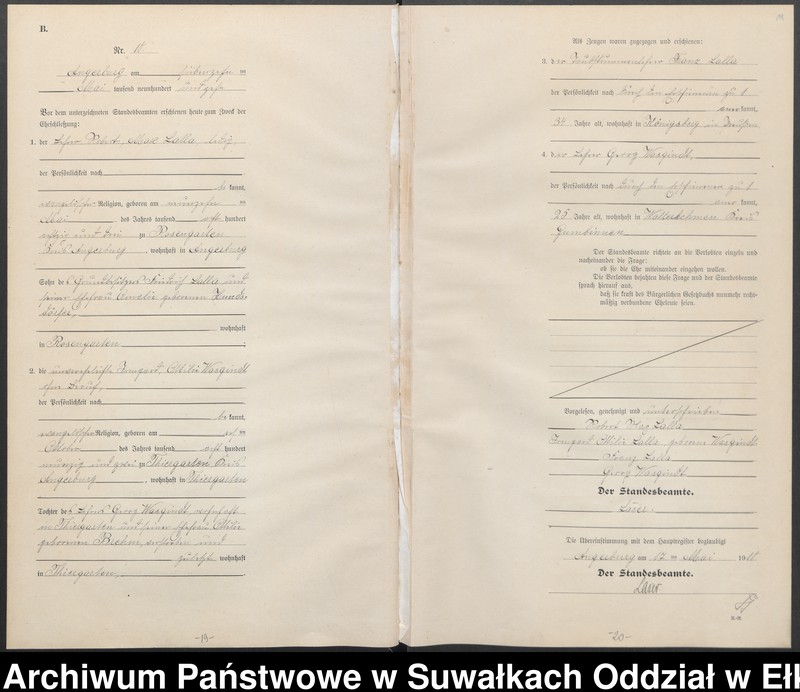 B.
Nr. 11.
Angerburg am siebenzehnten
Mai tausend neunhundert und zehn
Vor dem unterzeichneten Standesbeamten erschienen heute zum Zweck der
Eheschließung:
1. der Lehrer Robert, Max Lalla, ledig,
der Persönlichkeit nach
be kannt,
evangelischer Religion, geboren am neunzehnten
Mai des Jahres tausend acht hundert
achtzig und drei zu Rosengarten
Kreis Angerburg, wohnhaft in Angerburg
Sohn des Grundbesitzers Friedrich Lalla und
seiner Ehefrau Amalie geborenen
wohnhaft
in Rosengarten
2. die unverehelichte Irmgard, Ottilie Wargindt
ohne Beruf,
der Persönlichkeit nach
be kannt,
evangelischer Religion, geboren am
Oktober des Jahres tausend acht hundert
neunzig und zwei zu Thiergarten Kreis
Angerburg, wohnhaft in Thiergarten
Tochter des Lehrers Georg Wargindt wohnhaft
in Thiergarten und seiner Ehefrau Ottilie
geborenen Brehm, verstorben und
zuletzt wohnhaft
in Thiergarten.
-19-
Als Zeugen waren zugezogen und erschienen:
3. der Taubstummenlehrer Franz Lalla
der Persönlichkeit nach durch den Eheschließenden zu 1
aner kannt,
34 Jahre alt, wohnhaft in Königsberg in Preußen
4. der Lehrer Georg Wargindt,
der Persönlichkeit nach durch den Eheschließenden zu 1
aner kannt,
25 Jahre alt, wohnhaft in Walterkehmen Kreis
Gumbinnen
Der Standesbeamte richtete an die Verlobten einzeln und
nacheinander die Frage:
ob sie die Ehe miteinander eingehen wollen.
Die Verlobten bejahten diese Frage und der Standesbeamte
sprach hierauf aus,
daß sie kraft des Bürgerlichen Gesetzbuchs nunmehr recht-
mäßig verbundene Eheleute seien.
Vorgelesen, genehmigt und unterschrieben
Robert Max Lalla
Irmgard Ottilie Lalla geborene Wargindt
Franz Lalla
Georg Wargindt
Der Standesbeamte.
Laser.
Die Übereinstimmung mit dem Hauptregister beglaubigt
Angerburg am 17 ten Mai 19
Der Standesbeamte.
Laser
-20-
Archiwum Państwowe w Suwałkach Oddział w Ełk